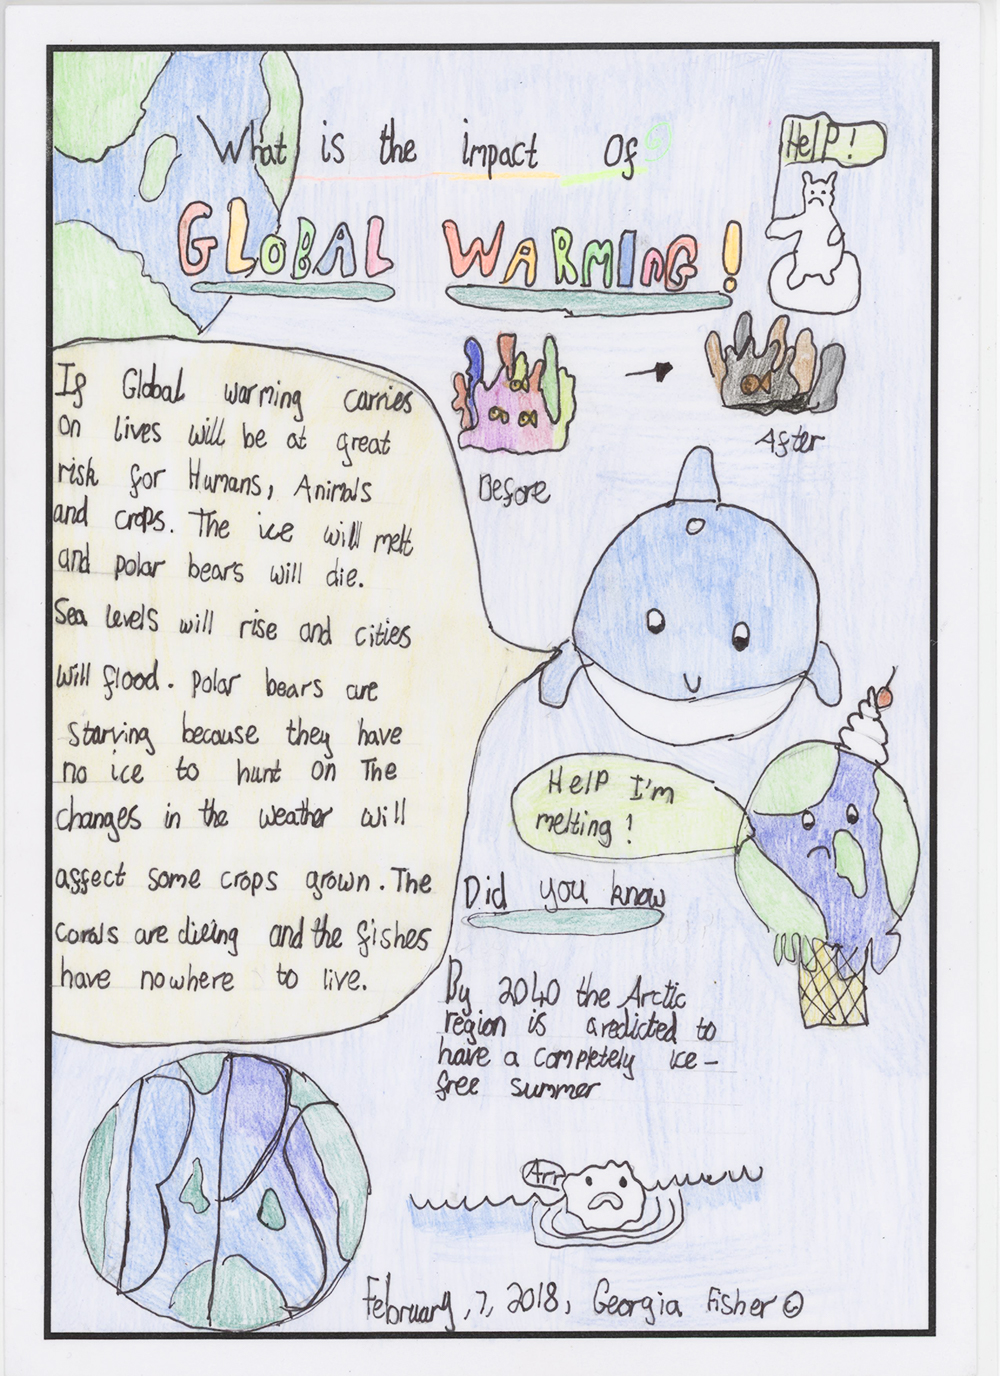 What is the impact of
GLOBAL WARMING!
HELP!
If Global warming carries
on lives will be at great
risk for Humans, Animals
and crops. The ice will melt
and polar bears will die.
Sea levels will rise and cities
will flood. polar bears are
starving because they have
no ice to hunt on The
changes in the weather will
affect some crops grown. The
corals are dieing and the fishes
have nowhere to live.
Before
After
Help I'm
melting!
Did you know
By 2040 the Arctic
region is aredicted to
have a completely ice-
free summer
Arr
February, 7, 2018, Georgia Fisher ©